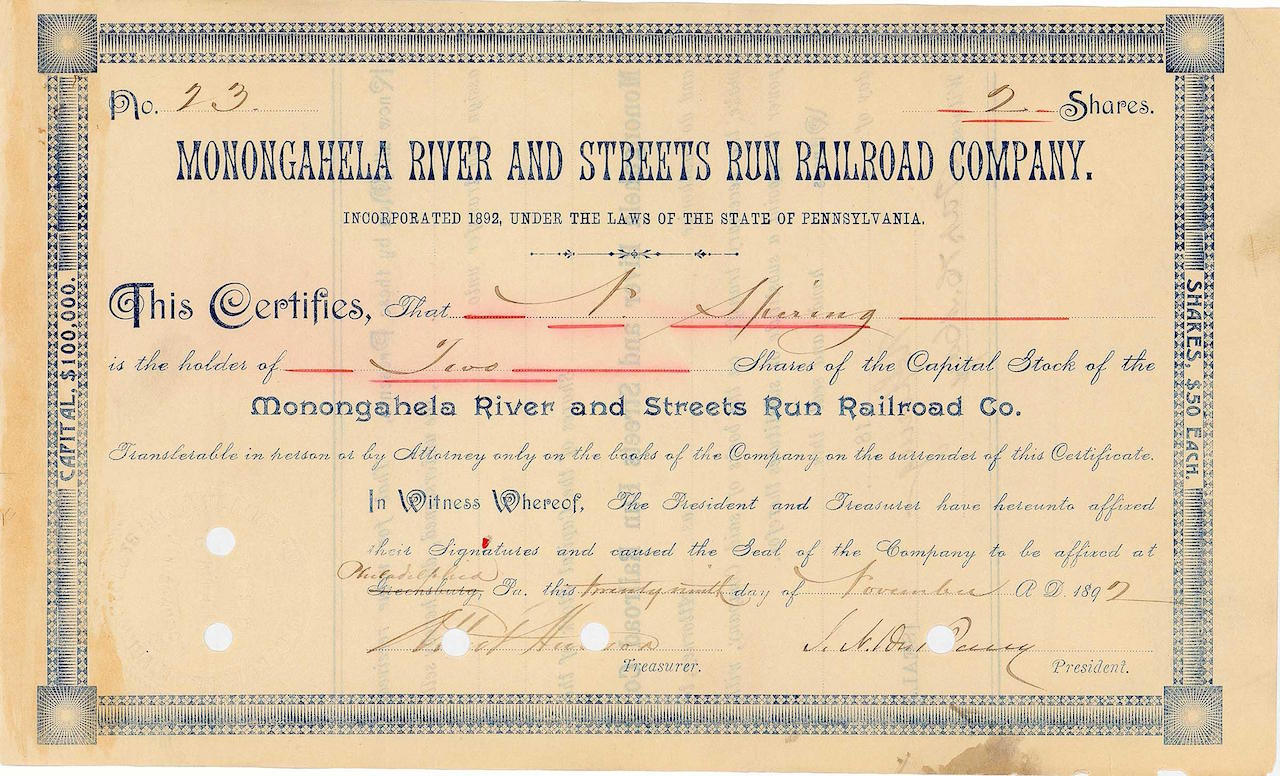 No. 23. 2 Shares.
MONONGAHELA RIVER AND STREETS RUN RAILROAD COMPANY.
INCORPORATED 1892, UNDER THE LAWS OF THE STATE OF PENNSYLVANIA.
This Certifies, That N. Spering
is the holder of Two Shares of the Capital Stock of the
Monongahela River and Streets Run Railroad Co.
Transferable in person or by Attorney only on the books of the Company on the surrender of this Certificate.
In Witness Whereof, The President and Treasurer have hereunto affixed
their Signatures and caused the Seal of the Company to be affixed at
Philadelphia
Greensburg, Pa. this twenty ninth day of November A. D. 1892
Treasurer.
President.
CAPITAL, $100,000.
SHARES, $50 EACH.